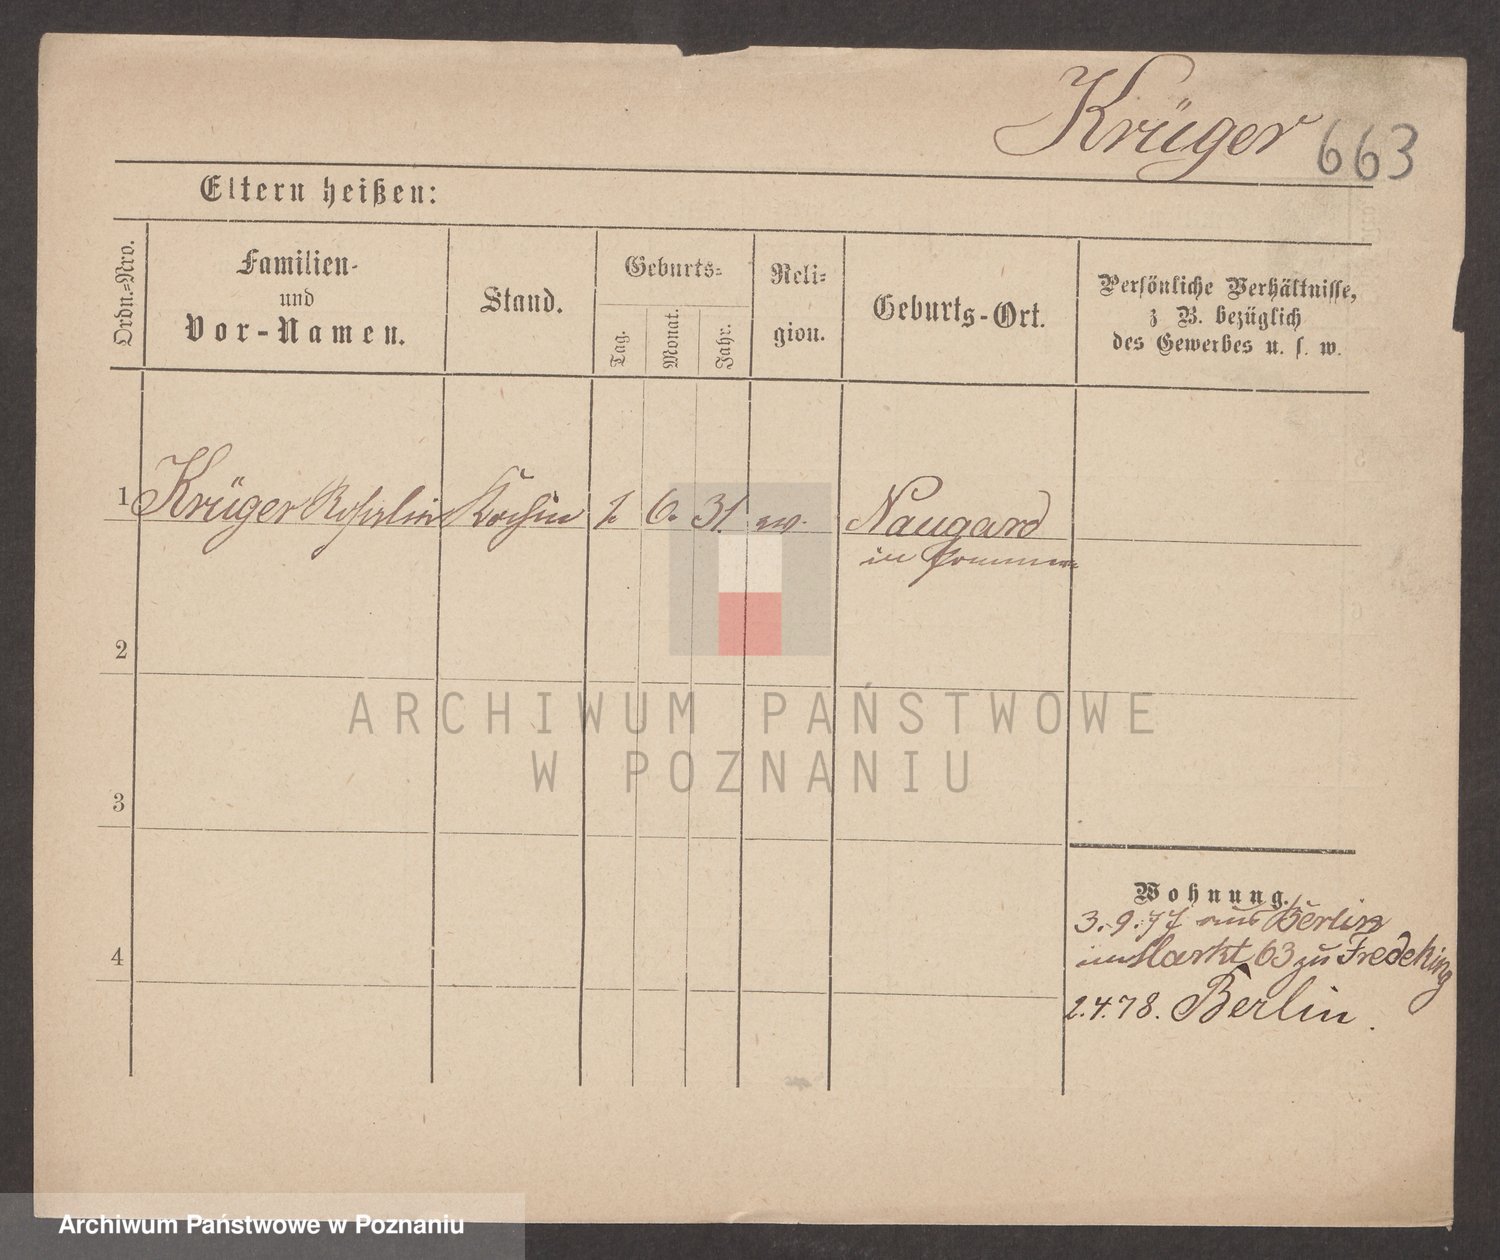 Krüger 663
Eltern heißen:
Ordn.=Nro.
Familien-
und
Vor-Namen.
Stand.
Geburts=
Tag.
Monat.
Jahr.
Reli=
gion.
Geburts-Ort.
Persönliche Verhältnisse,
z B. bezüglich
des Gewerbes u. s. w.
1 Krüger Köchin 6. 31. ev. Naugard
in Pommern
2
3
4
Wohnung.
3.9.77 aus Berlin
Markt 63 zu Fredeking
2.4.78. Berlin.
ARCHIWUM PAŃSTWOWE
W POZNANIU
Archiwum Państwowe w Poznaniu